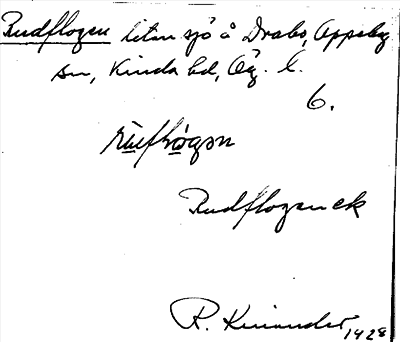 Rudflogen liten sjö å Drabo, Oppeby
sn, Kinda hd, Ög. l.
6.
Rudflogen ek
R. Kinander 1928